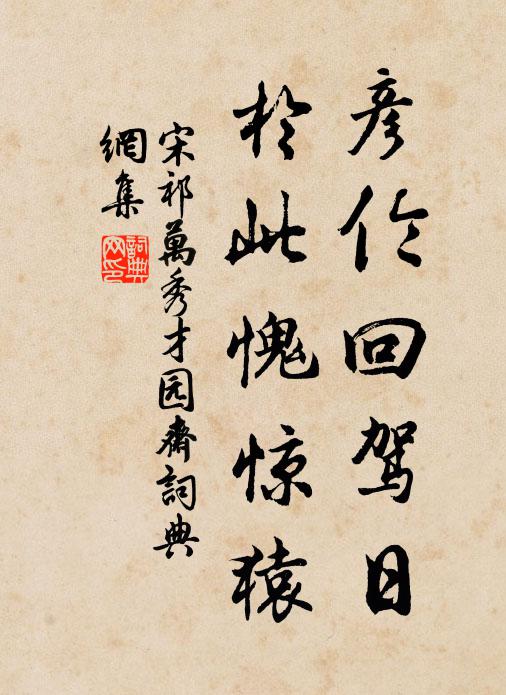 彦伦回驾日
於此愧惊猿
宋祁萬秀才园齋詞典
網集
詞典网印